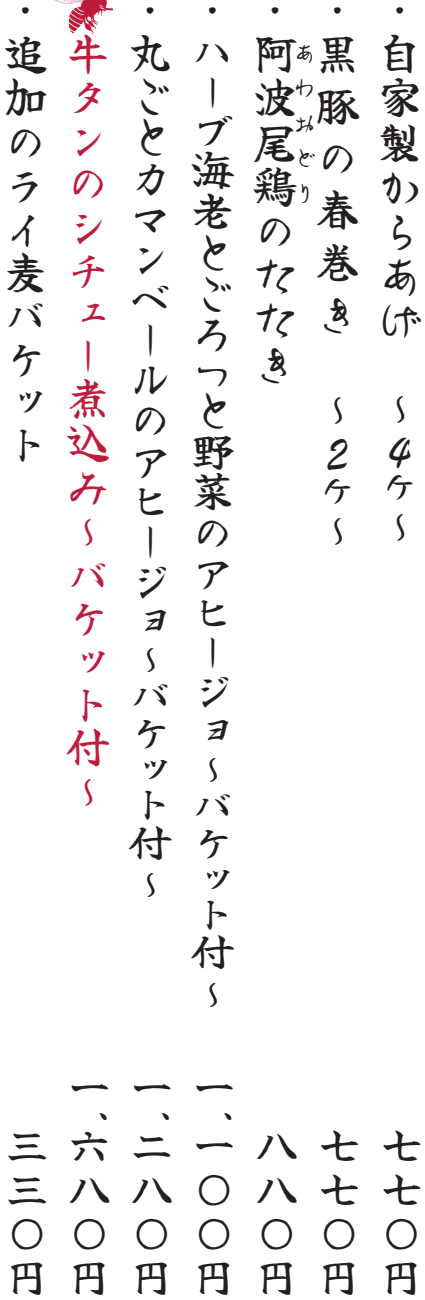 ・自家製からあげ ~4ケ~ 七七〇円
・黒豚の春巻き ~2ケ~ 七七〇円
・阿波尾鶏のたたき 八八〇円
あわおどり
・ハーブ海老とごろっと野菜のアヒージョ~バケット付~ 一、一〇〇円
・丸ごとカマンベールのアヒージョ~バケット付~ 一、二八〇円
牛タンのシチュー煮込み~バケット付~ 一、六八〇円
・追加のライ麦バケット 三三〇円